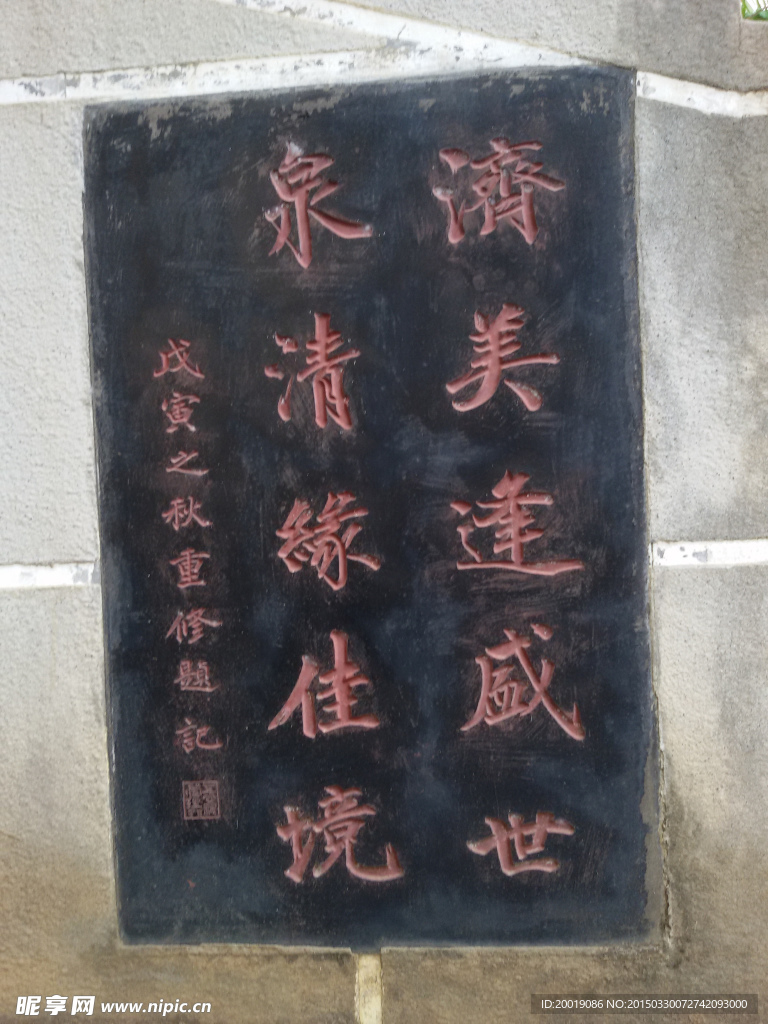 濟美逢盛世
泉清緣佳境
戊寅之秋重修題記
昵享网 www.nipic.cn
ID:20019086 NO:20150330072742093000